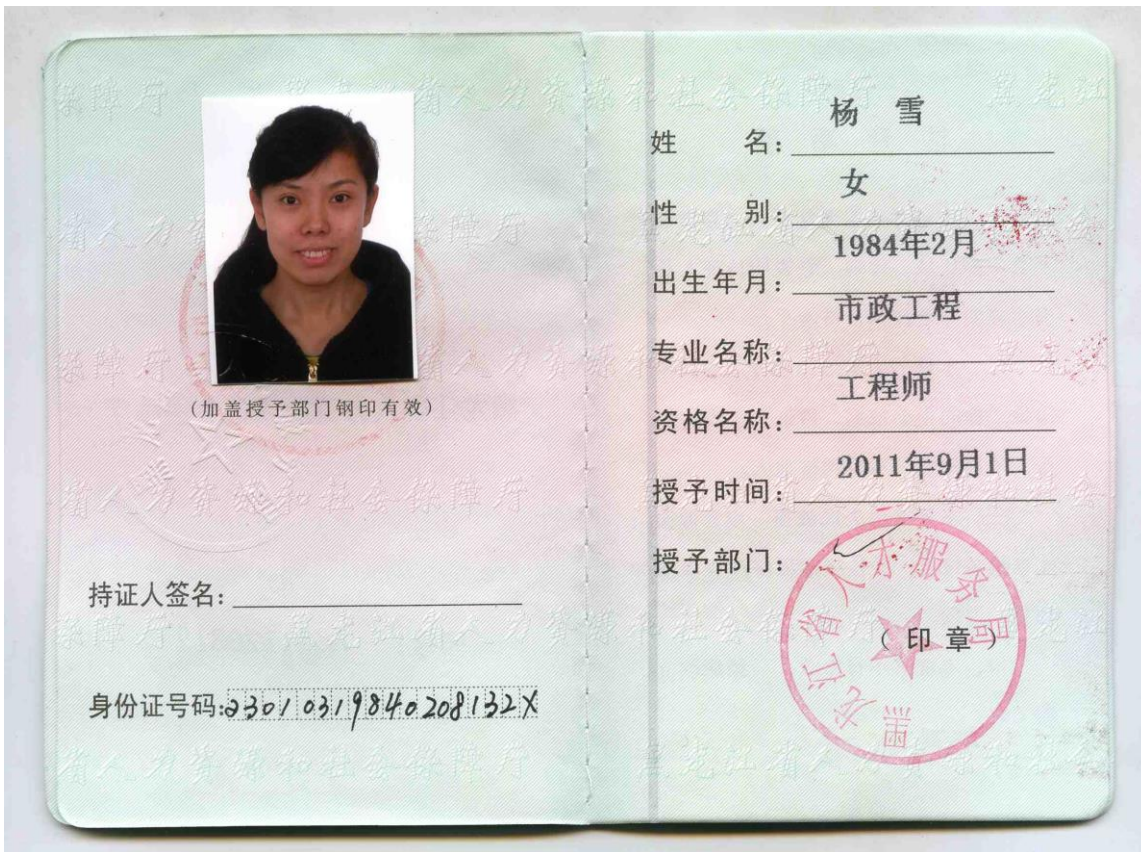 (加盖授予部门钢印有效)
持证人签名:
身份证号码:23010319840208132X
姓 名: 杨 雪
性 别: 女
出生年月: 1984年2月
专业名称: 市政工程
资格名称: 工程师
授予时间: 2011年9月1日
授予部门:
黑龙江省人才服务局
(印章)